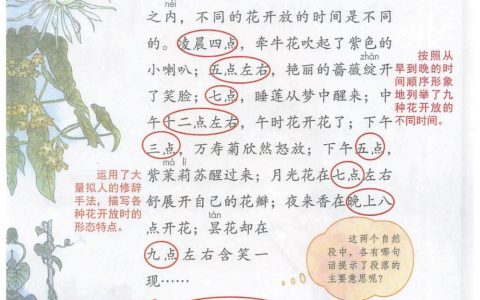 nèi
之内，不同的花开放的时间是不同
的。凌晨四点，牵牛花吹起了紫色的
zhàn
小喇叭；五点左右，艳丽的蔷薇绽开
了笑脸；七点，睡莲从梦中醒来；中
午十二点左右，午时花开花了；下午
三点，万寿菊欣然怒放；下午五点，
mò lì
紫茉莉苏醒过来；月光花在七点左右
舒展开自己的花瓣；夜来香在晚上八
lán
点开花；昙花却在
九点左右含笑一
现……
按照从
早到晚的时
间顺序形象
地列举了九
种花开放的
不同时间。
运用了大
量拟人的修辞
手法，描写各
种花开放时的
形态特点。
这两个自然
段中，各有哪句
话提示了段落的
主要意思呢？